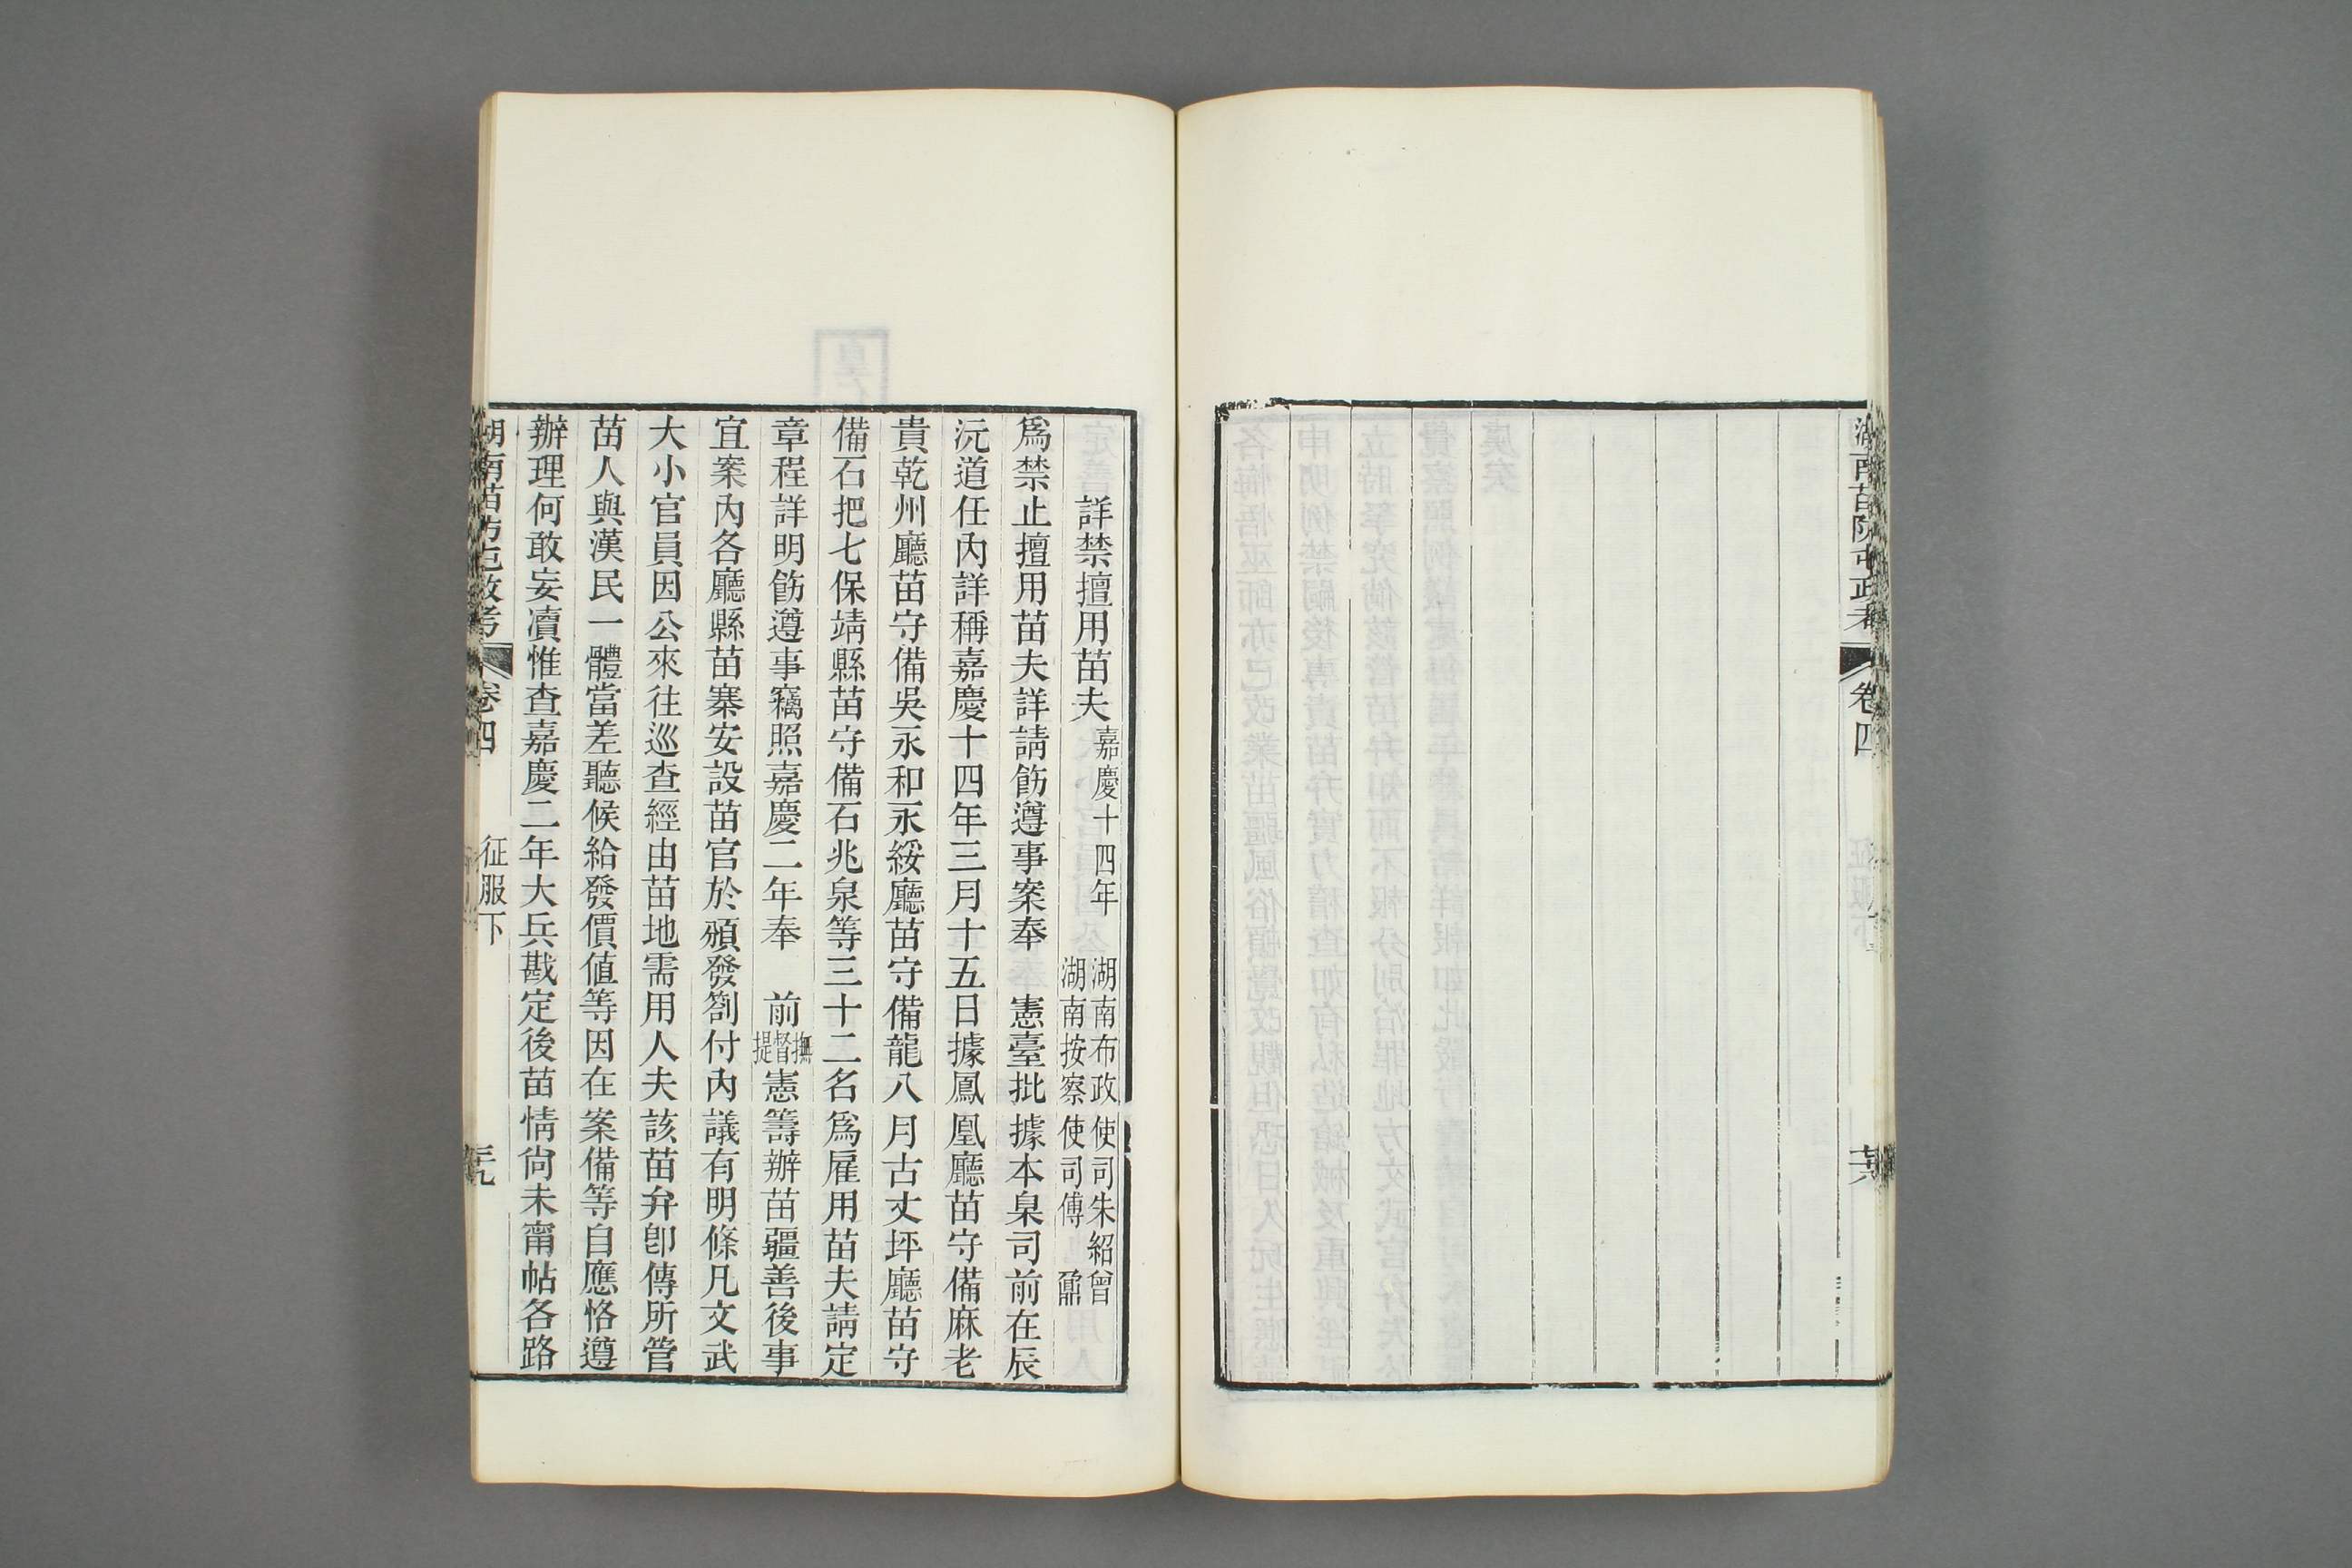 湖南苗防屯政考
卷四
詳禁擅用苗夫
嘉慶十四年
湖南布政使司朱紹曾
湖南按察使司傅 鼐
爲禁止擅用苗夫詳請飭遵事案奉 憲臺批據本臬司前在辰
沅道任內詳稱嘉慶十四年三月十五日據鳳凰廳苗守備麻老
貴乾州廳苗守備吳永和永綏廳苗守備龍八月古丈坪廳苗守
備石把七保靖縣苗守備石兆泉等三十二名爲雇用苗夫請定
章程詳明飭遵事竊照嘉慶二年奉 前撫督提憲籌辦苗疆善後事
宜案內各廳縣苗寨安設苗官於頒發劄付內議有明條凡文武
大小官員因公來往巡查經由苗地需用人夫該苗弁卽傳所管
苗人與漢民一體當差聽候給發價值等因在案備等自應恪遵
辦理何敢妄凟惟查嘉慶二年大兵戡定後苗情尙未甯帖各路
湖南苗防屯政考
卷四
征服下